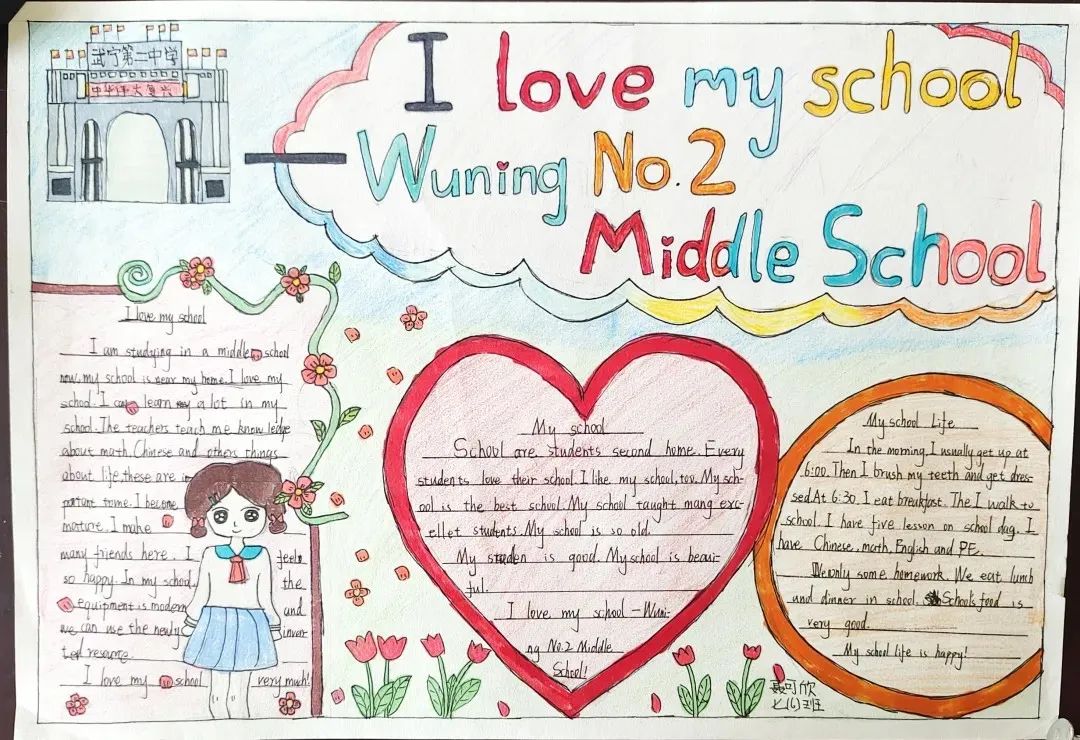 武宁第二中学
中华伟大复兴
I love my school
Wuning No.2
Middle School
I love my school
I am studying in a middle school
now, my school is near my home. I love my
school. I can learn a lot in my
school. The teachers teach me know ledge
about math, Chinese and others things
about life, these are im
portant to me. I become
mature. I make
many friends here. I feels
so happy. In my school, the
equipment is modern and
we can use the newly inven-
ted resource
I love my school very much!
My school
School are students second home. Every
students love their school. I like my school, too. My sch-
ool is the best school. My school taught mang exc-
ellet students. My school is so old.
My studen is good. My school is beaui-
ful.
I love my school - Wuni-
ng No.2 Middle
School!
My school Life
In the morning, I usually get up at
6:00. Then I brush my teeth and get dres-
sed. At 6:30. I eat breakfast. The I walk to
school. I have five lesson on school dag. I
have Chinese, math, English and PE.
We only some homework. We eat lunch
and dinner in school. School's food is
very good.
My school life is happy!
聂可欣
七(6)班